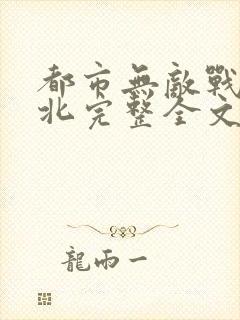 都市無敵戰
北完整全文
龍雨一